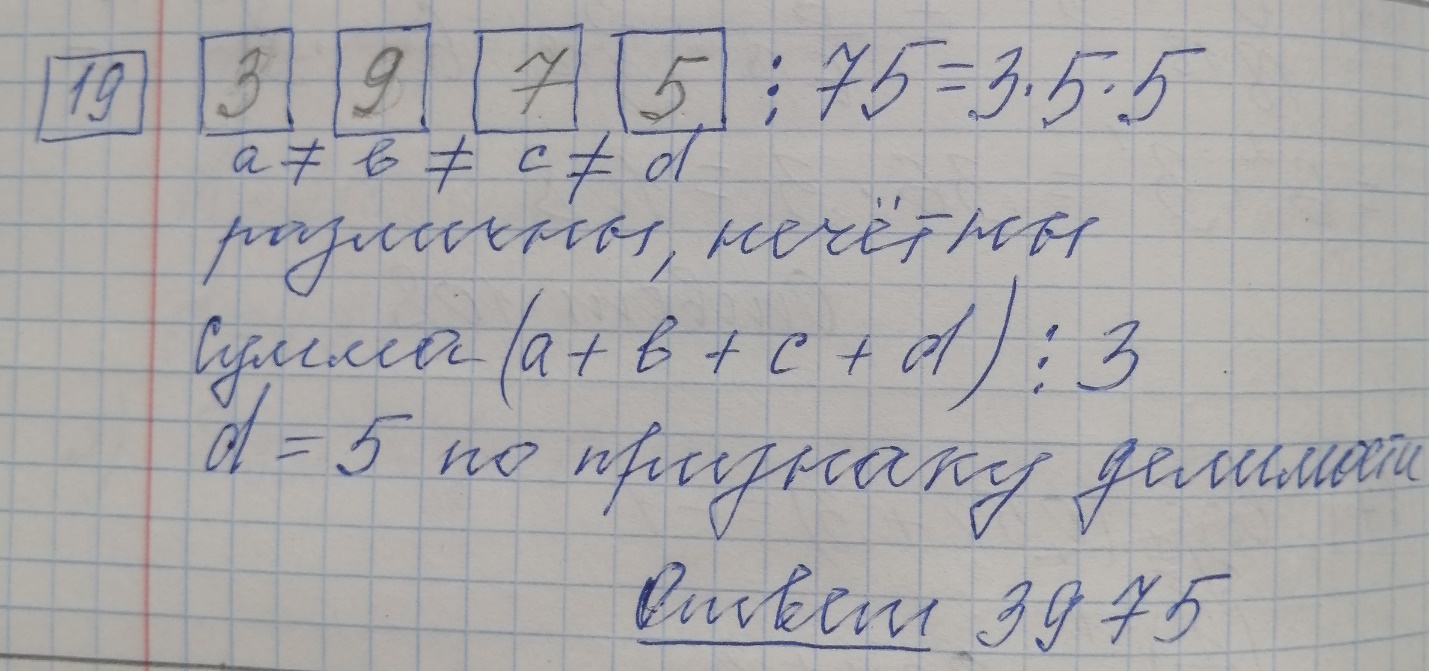 19 3 9 7 5 ⋮ 75 = 3·5·5
a ≠ в ≠ c ≠ d
различны, нечётны
Сумма (a + в + c + d) ⋮ 3
d = 5 по признаку делимости
Ответ 3975